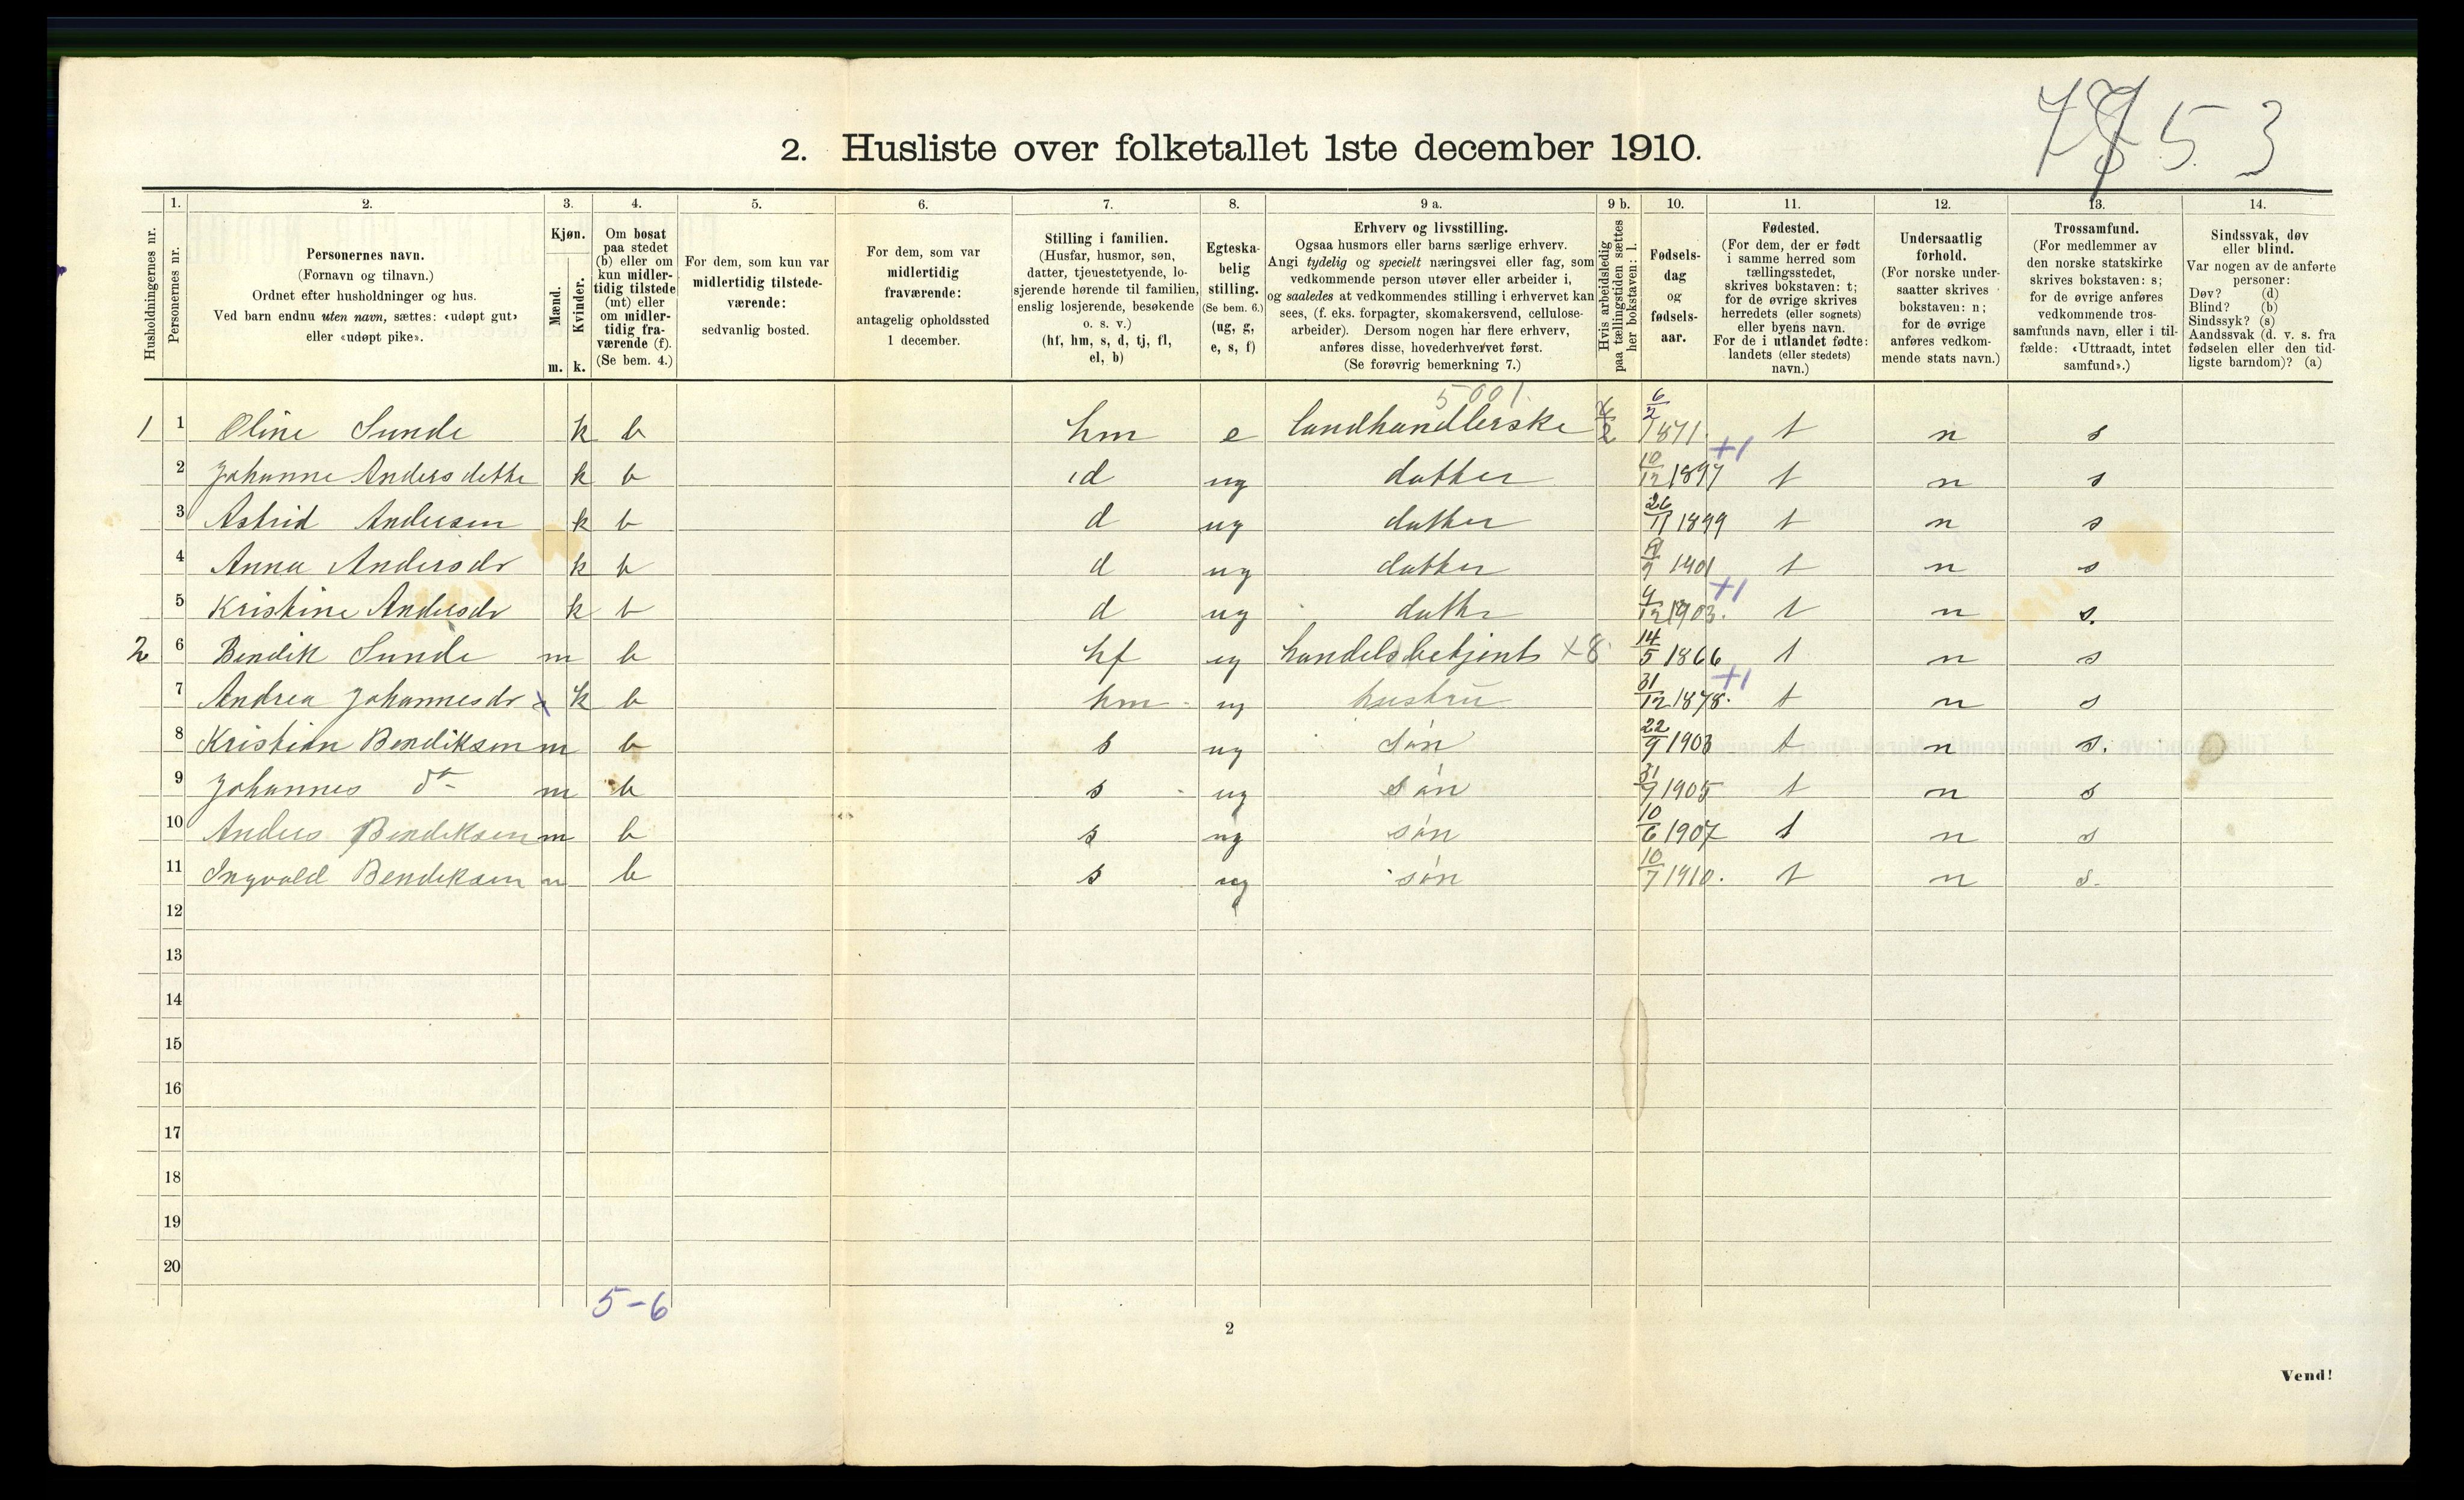 7 5 3
2. Husliste over folketallet 1ste december 1910.
Husholdningernes nr.
1. Personernes nr.
2. Personernes navn.
(Fornavn og tilnavn.)
Ordnet efter husholdninger og hus.
Ved barn endnu uten navn, sættes: «udøpt gut»
eller «udøpt pike».
3. Kjøn.
Mænd. Kvinder.
m. k.
4. Om bosat
paa stedet
(b) eller om
kun midler-
tidig tilstede
(mt) eller
om midler-
tidig fra-
værende (f).
(Se bem. 4.)
5. For dem, som kun var
midlertidig tilstede-
værende:
sedvanlig bosted.
6. For dem, som var
midlertidig
fraværende:
antagelig opholdssted
1 december.
7. Stilling i familien.
(Husfar, husmor, søn,
datter, tjenestetyende, lo-
sjerende hørende til familien,
enslig losjerende, besøkende
o. s. v.)
(hf, hm, s, d, tj, fl,
el, b)
8. Egteska-
belig
stilling.
(Se bem. 6.)
(ug, g,
e, s, f)
9 a. Erhverv og livsstilling.
Ogsaa husmors eller barns særlige erhverv.
Angi tydelig og specielt næringsvei eller fag, som
vedkommende person utøver eller arbeider i,
og saaledes at vedkommendes stilling i erhvervet kan
sees, (f. eks. forpagter, skomakersvend, cellulose-
arbeider). Dersom nogen har flere erhverv,
anføres disse, hovederhvervet først.
(Se forøvrig bemerkning 7.)
9 b. Hvis arbeidsledig
paa tællingstiden sættes
her bokstaven: l.
10. Fødsels-
dag
og
fødsels-
aar.
11. Fødested.
(For dem, der er født
i samme herred som
tællingsstedet,
skrives bokstaven: t;
for de øvrige skrives
herredets (eller sognets)
eller byens navn.
For de i utlandet fødte:
landets (eller stedets)
navn.)
12. Undersaatlig
forhold.
(For norske under-
saatter skrives
bokstaven: n;
for de øvrige
anføres vedkom-
mende stats navn.)
13. Trossamfund.
(For medlemmer av
den norske statskirke
skrives bokstaven: s;
for de øvrige anføres
vedkommende tros-
samfunds navn, eller i til-
fælde: «Uttraadt, intet
samfund».)
14. Sindssvak, døv
eller blind.
Var nogen av de anførte
personer:
Døv? (d)
Blind? (b)
Sindssyk? (s)
Aandssvak (d. v. s. fra
fødselen eller den tid-
ligste barndom)? (a)
5001.
1 1 Oline Sunde k b hm e landhandlerske 6/2 1871 t n s
2 Johanne Andersdatter k b d ug datter 10/12 1897 +1 t n s
3 Astrid Andersen k b d ug datter 26/11 1899 t n s
4 Anna Andersdr k b d ug datter 1901 t n s
5 Kristine Andersdr k b d ug datter 9/12 1903. +1 t n s.
2 6 Bendik Sunde m b hf eg handelsbetjent ×8 14/5 1866 t n s
7 Andrea Johannesdr x k b hm g hustru 31/12 1878. +1 t n s
8 Kristian Bendiksen m b s ug søn 22/9 1903 t n s.
9 Johannes do m b s ug søn 31/7 1905 t n s
10 Anders Bendiksen m b s ug søn 10/6 1907 t n s
11 Ingvald Bendiksen m b s ug søn 10/7 1910. t n s.
12
13
14
15
16
17
18
19
20
5-6
2
Vend!